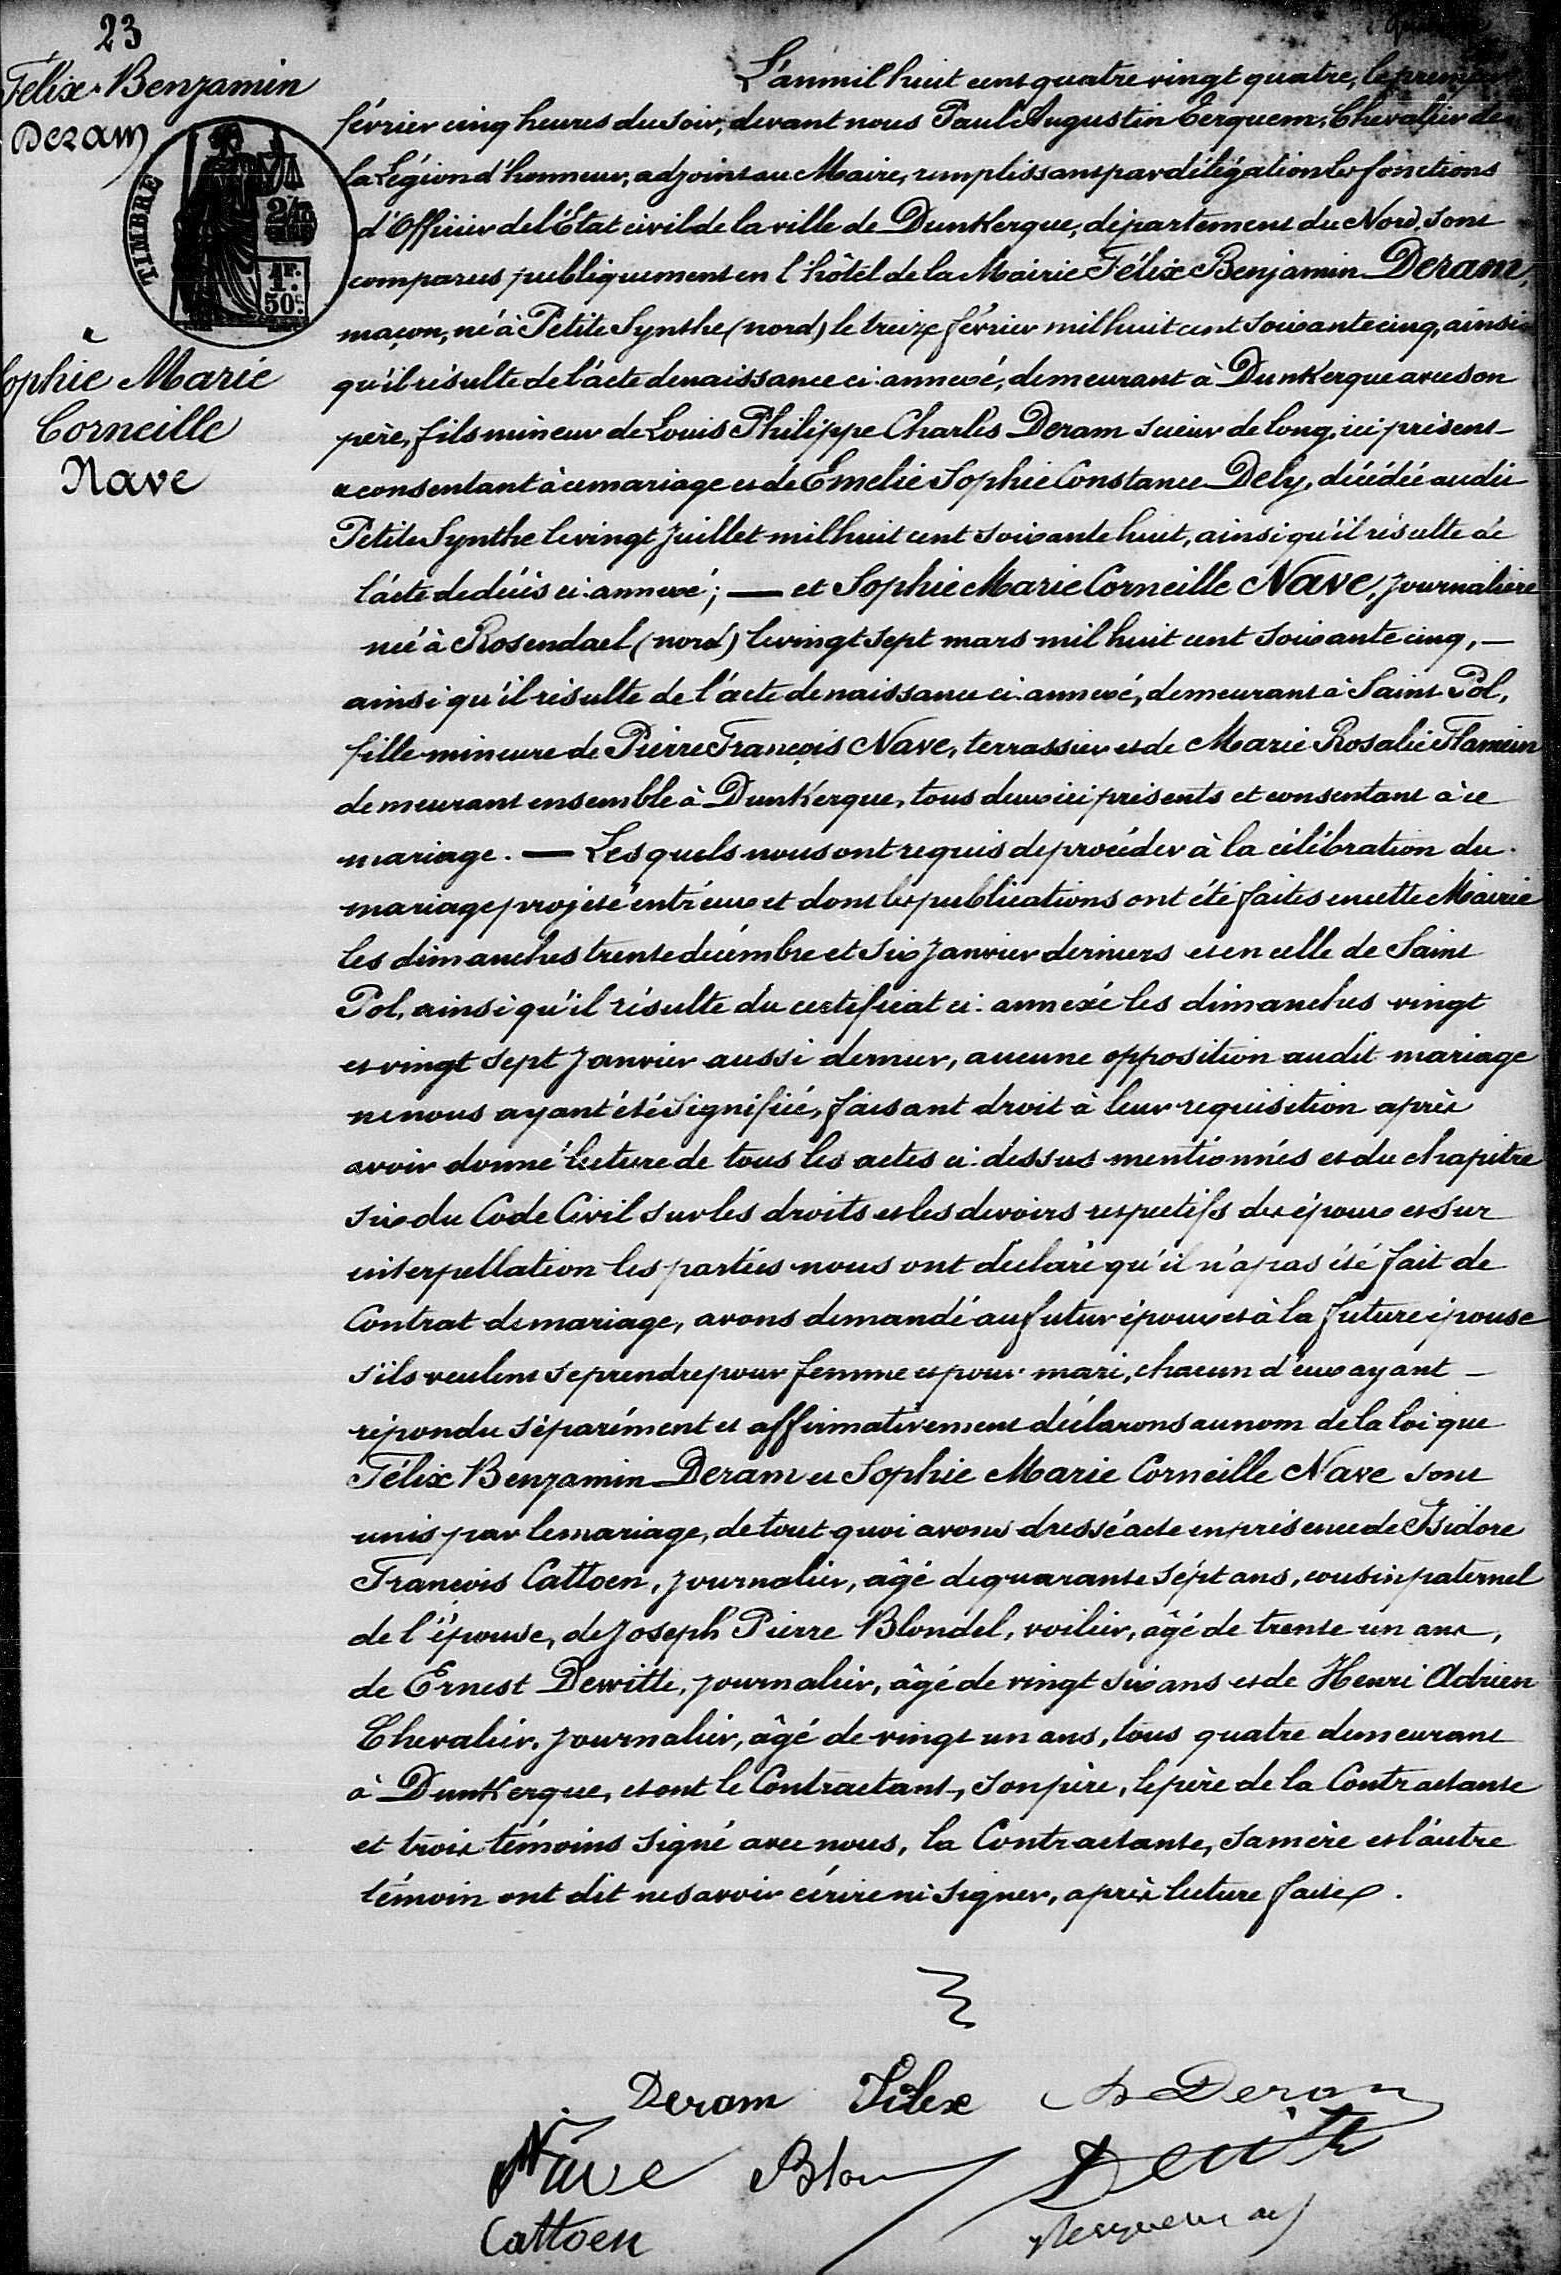 23
Félix Benjamin
Deram
TIMBRE
1F.
50c.
&
Sophie Marie
Corneille
Nave
L'an mil huit cent quatre vingt quatre, le premier
février cinq heures du soir, devant nous Paul Augustin Terquem, Chevalier de
la Légion d'honneur, adjoint au Maire, remplissant par délégation les fonctions
d'Officier de l'État civil de la ville de Dunkerque, département du Nord, sont
comparus publiquement en l'hôtel de la Mairie Félix Benjamin Deram,
maçon, né à Petite Synthe (nord) le treize février mil huit cent soixante cinq, ainsi
qu'il résulte de l'acte de naissance ci-annexé, demeurant à Dunkerque avec son
père, fils mineur de Louis Philippe Charles Deram scieur de long, ici présent
& consentant à ce mariage et de Emelie Sophie Constance Dely, décédée au dit
Petite Synthe le vingt juillet mil huit cent soixante huit, ainsi qu'il résulte de
l'acte de décès ci-annexé; — et Sophie Marie Corneille Nave, journalière
née à Rosendael (nord) le vingt sept mars mil huit cent soixante cinq, —
ainsi qu'il résulte de l'acte de naissance ci-annexé, demeurant à Saint Pol,
fille mineure de Pierre François Nave, terrassier et de Marie Rosalie Flamein
demeurant ensemble à Dunkerque, tous deux ici présents et consentant à ce
mariage. — Lesquels nous ont requis de procéder à la célébration du
mariage projeté entr'eux et dont les publications ont été faites en cette Mairie
les dimanches trente décembre et six janvier derniers et en celle de Saint
Pol, ainsi qu'il résulte du certificat ci-annexé les dimanches vingt
et vingt sept janvier aussi dernier, aucune opposition audit mariage
ne nous ayant été signifiée, faisant droit à leur requisition après
avoir donné lecture de tous les actes ci-dessus mentionnés et du chapitre
six du Code Civil sur les droits et les devoirs respectifs des époux et sur
interpellation les parties nous ont déclaré qu'il n'a pas été fait de
Contrat de mariage, avons demandé au futur époux et à la future épouse
s'ils veulent se prendre pour femme et pour mari, chacun d'eux ayant —
répondu séparément et affirmativement déclarons au nom de la loi que
Félix Benjamin Deram et Sophie Marie Corneille Nave sont
unis par le mariage, de tout quoi avons dressé acte en présence de Isidore
François Cattoen, journalier, âgé de quarante sept ans, cousin paternel
de l'épouse, de Joseph Pierre Blondel, voilier, âgé de trente un ans,
de Ernest Dewitte, journalier, âgé de vingt six ans et de Henri Adrien
Chevalier, journalier, âgé de vingt un ans, tous quatre demeurant
à Dunkerque, et ont le Contractant, son père, le père de la Contractante
et trois témoins signé avec nous, la Contractante, sa mère et l'autre
témoin ont dit ne savoir écrire ni signer, après lecture faite.
Deram Félix Deram
Nave Blon Dewitte
Cattoen Terquem adj